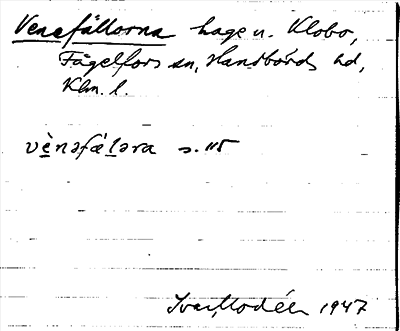 Venefällorna hage u. Klobo,
Fågelfors sn, Handbörds hd,
Klm. l.
vènəfǽləra s. 115
Ivar Modéer 1947